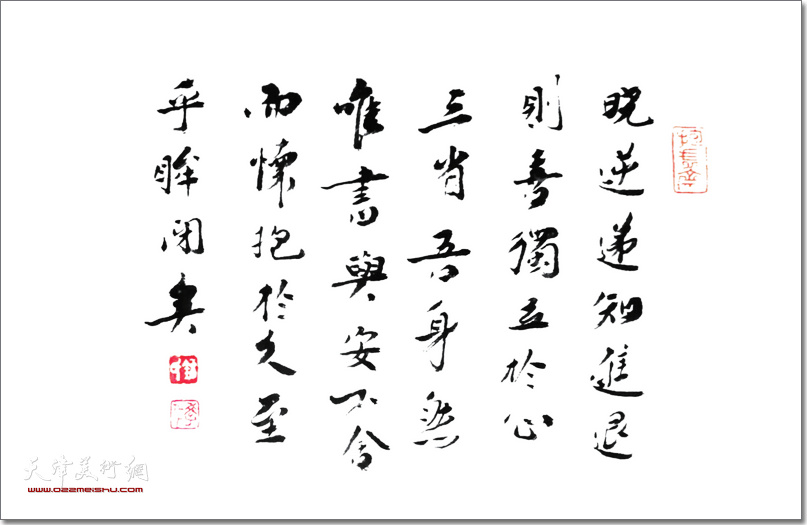 晓逆递知進退
則喜獨立於心
三省吾身然
唯書與安不舍
而懷抱於久至
乎眸闭矣
天津美術網
www.022meishu.com